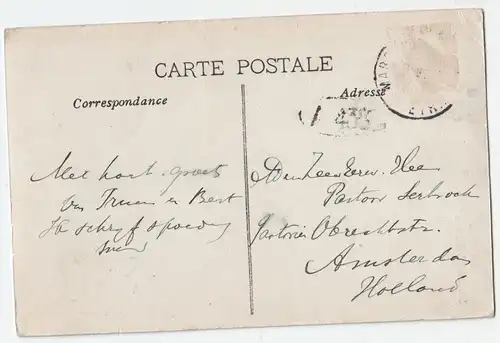 CARTE POSTALE
Correspondance
Adresse
MARS
ETRA
Met hart. groet
van Truus en Bert
Ik schrijf spoedig
Den Zeereerw. Heer
Pastoor
Pastorie Obrechtstr.
Amsterdam
Holland